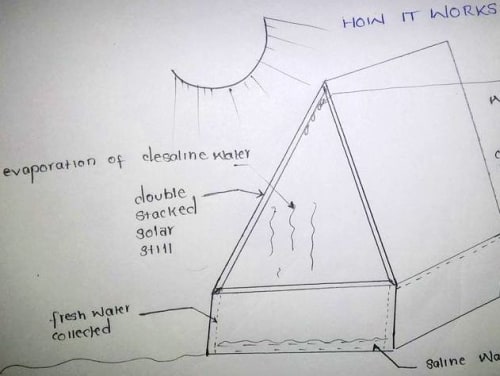 HOW IT WORKS
evaporation of desaline water
double
stacked
solar
still
fresh water
collected
saline Wa